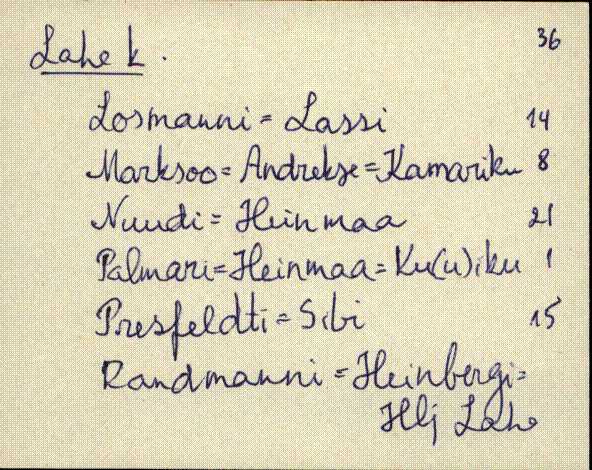 36
Lahe k.
Losmanni = Lassi 14
Marksoo = Andrekse = Kamariku 8
Nuudi = Heinmaa 21
Palmari = Heinmaa = Ku(u)iku 1
Presfeldti = Sibi 15
Randmanni = Heinbergi =
Hlj Lahe